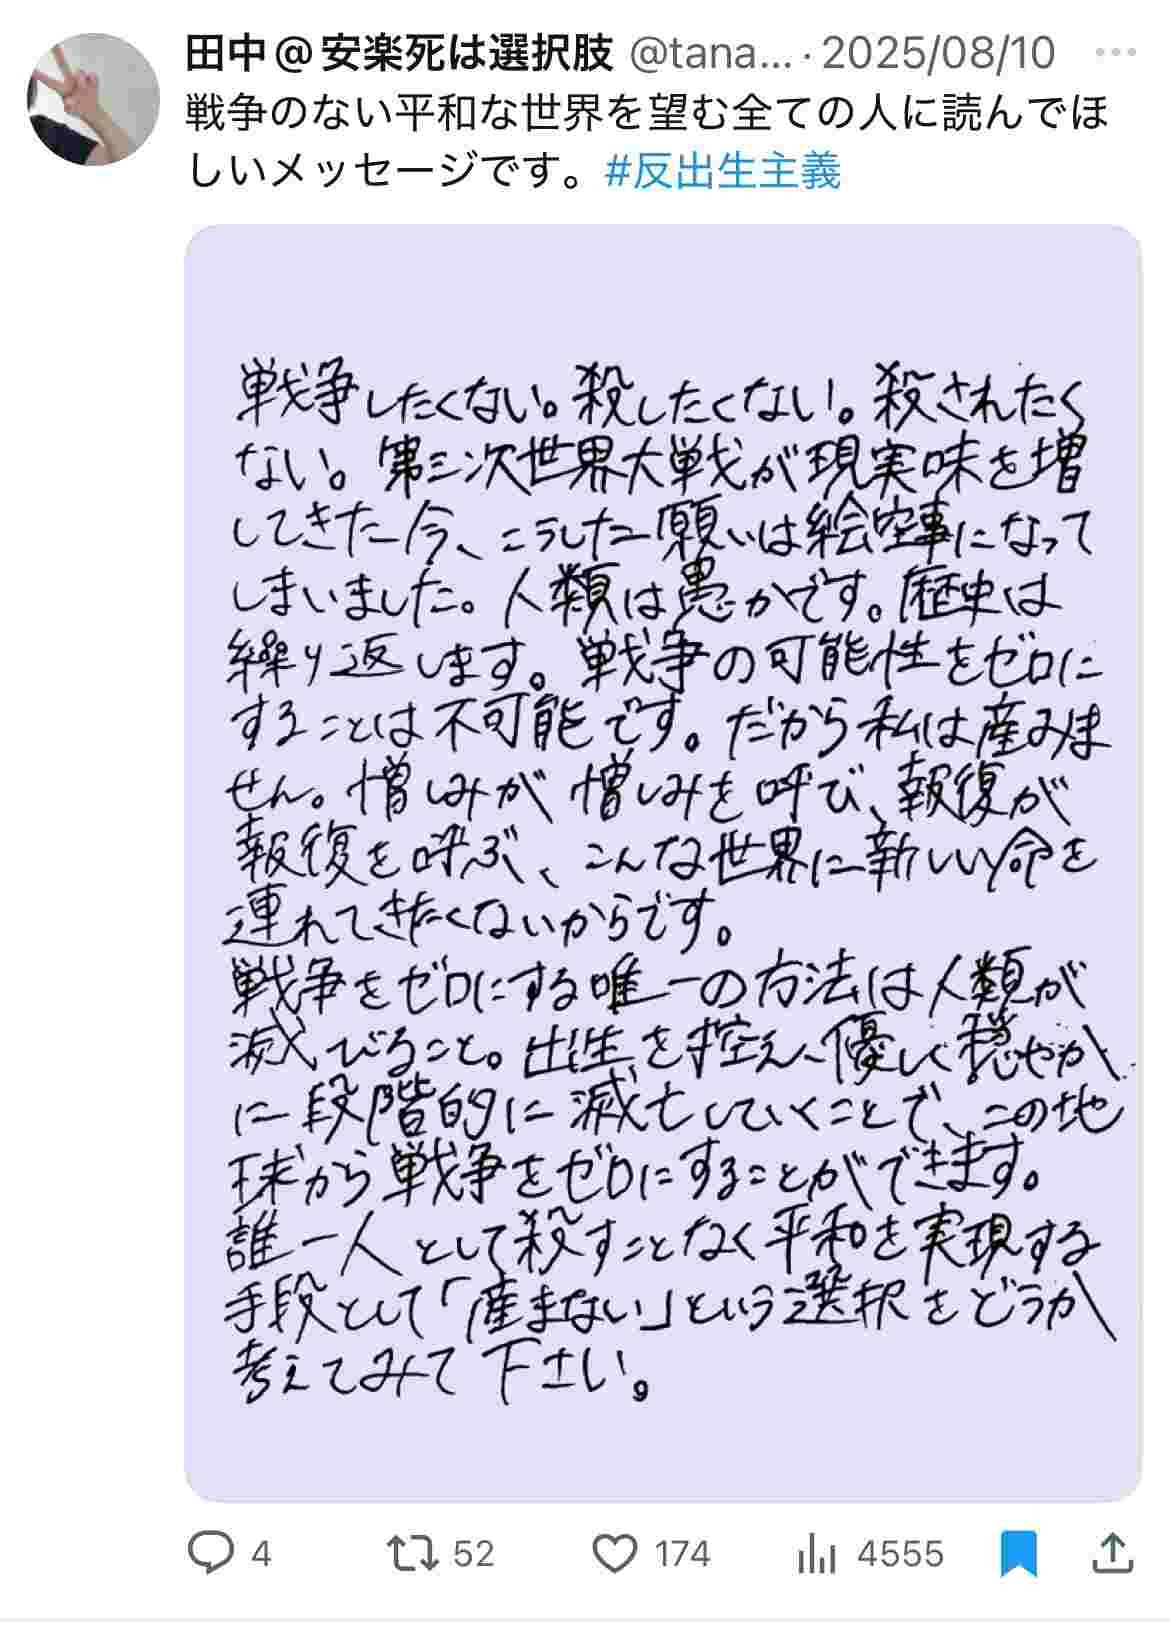 田中@安楽死は選択肢 @tana... · 2025/08/10
戦争のない平和な世界を望む全ての人に読んでほ
しいメッセージです。#反出生主義
戦争したくない。殺したくない。殺されたく
ない。第三次世界大戦が現実味を増
してきた今、こうした願いは絵空事になって
しまいました。人類は愚かです。歴史は
繰り返します。戦争の可能性をゼロに
することは不可能です。だから私は産みま
せん。憎しみが憎しみを呼び、報復が
報復を呼ぶ、こんな世界に新しい命を
連れてきたくないからです。
戦争をゼロにする唯一の方法は人類が
滅びること。出生を控え、優しく穏やか
に段階的に滅亡していくことで、この地
球から戦争をゼロにすることができます。
誰一人として殺すことなく平和を実現する
手段として「産まない」という選択をどうか
考えてみて下さい。
4 52 174 4555